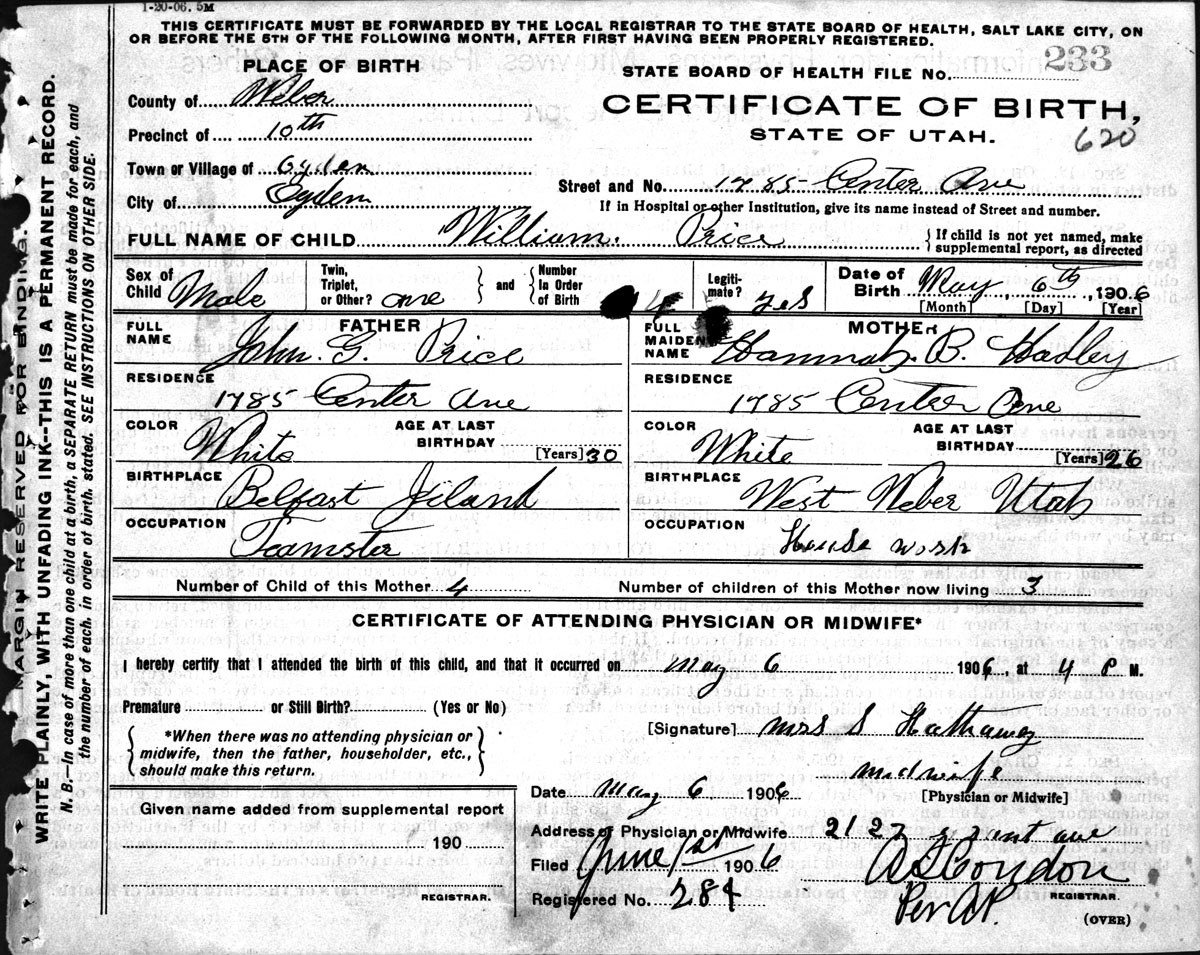 1-20-06. 5M
THIS CERTIFICATE MUST BE FORWARDED BY THE LOCAL REGISTRAR TO THE STATE BOARD OF HEALTH, SALT LAKE CITY, ON
OR BEFORE THE 5TH OF THE FOLLOWING MONTH, AFTER FIRST HAVING BEEN PROPERLY REGISTERED.
PLACE OF BIRTH
STATE BOARD OF HEALTH FILE No. 233
County of Weber
CERTIFICATE OF BIRTH,
Precinct of 10th
STATE OF UTAH.
620
Town or Village of Ogden
Street and No. 1785 Center Ave
City of Ogden
If in Hospital or other Institution, give its name instead of Street and number.
FULL NAME OF CHILD William. Price
{ If child is not yet named, make
supplemental report, as directed
Sex of Child Male
Twin, Triplet, or Other? one
} and {
Number In Order of Birth 4
Legiti-mate? yes
Date of Birth May, 6th, 1906
[Month] [Day] [Year]
FATHER
FULL NAME John. G. Price
RESIDENCE
1785 Center Ave
COLOR White
AGE AT LAST BIRTHDAY 30
[Years]
BIRTHPLACE Belfast Island
OCCUPATION Teamster
MOTHER
FULL MAIDEN NAME Hannah. B. Hadley
RESIDENCE
1785 Center Ave
COLOR White
AGE AT LAST BIRTHDAY 26
[Years]
BIRTHPLACE West Weber Utah
OCCUPATION House work
Number of Child of this Mother 4
Number of children of this Mother now living 3
CERTIFICATE OF ATTENDING PHYSICIAN OR MIDWIFE*
I hereby certify that I attended the birth of this child, and that it occurred on May 6 1906, at 4 P M.
Premature or Still Birth? (Yes or No)
{ *When there was no attending physician or
midwife, then the father, householder, etc.,
should make this return. }
[Signature] Mrs S Hathaway
midwife
[Physician or Midwife]
Date May 6 1906
Given name added from supplemental report
190
REGISTRAR.
Address of Physician or Midwife 2127 grant ave
Filed June 1st 1906
A S Condon
REGISTRAR.
Registered No. 284
Per A.P.
(OVER)
MARGIN RESERVED FOR BINDING.
WRITE PLAINLY, WITH UNFADING INK—THIS IS A PERMANENT RECORD.
N. B.—In case of more than one child at a birth, a SEPARATE RETURN must be made for each, and
the number of each, in order of birth, stated. SEE INSTRUCTIONS ON OTHER SIDE.